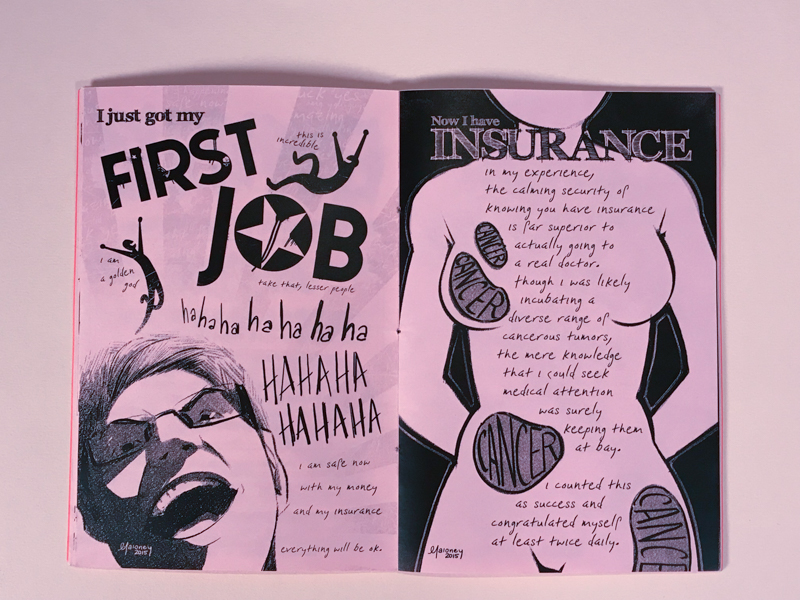 I just got my
FIRST
JOB
this is
incredible
i am
a golden
god
take that, lesser people
hahaha ha ha ha ha
HAHAHA
HAHAHA
i am safe now
with my money
and my insurance
everything will be ok.
Maroney
2015
Now I have
INSURANCE
in my experience,
the calming security of
knowing you have insurance
is far superior to
actually going to
a real doctor.
though i was likely
incubating a
diverse range of
cancerous tumors,
the mere knowledge
that i could seek
medical attention
was surely
keeping them
at bay.
CANCER
CANCER
CANCER
i counted this
as success and
congratulated myself
at least twice daily.
CANCE
Maroney
2015